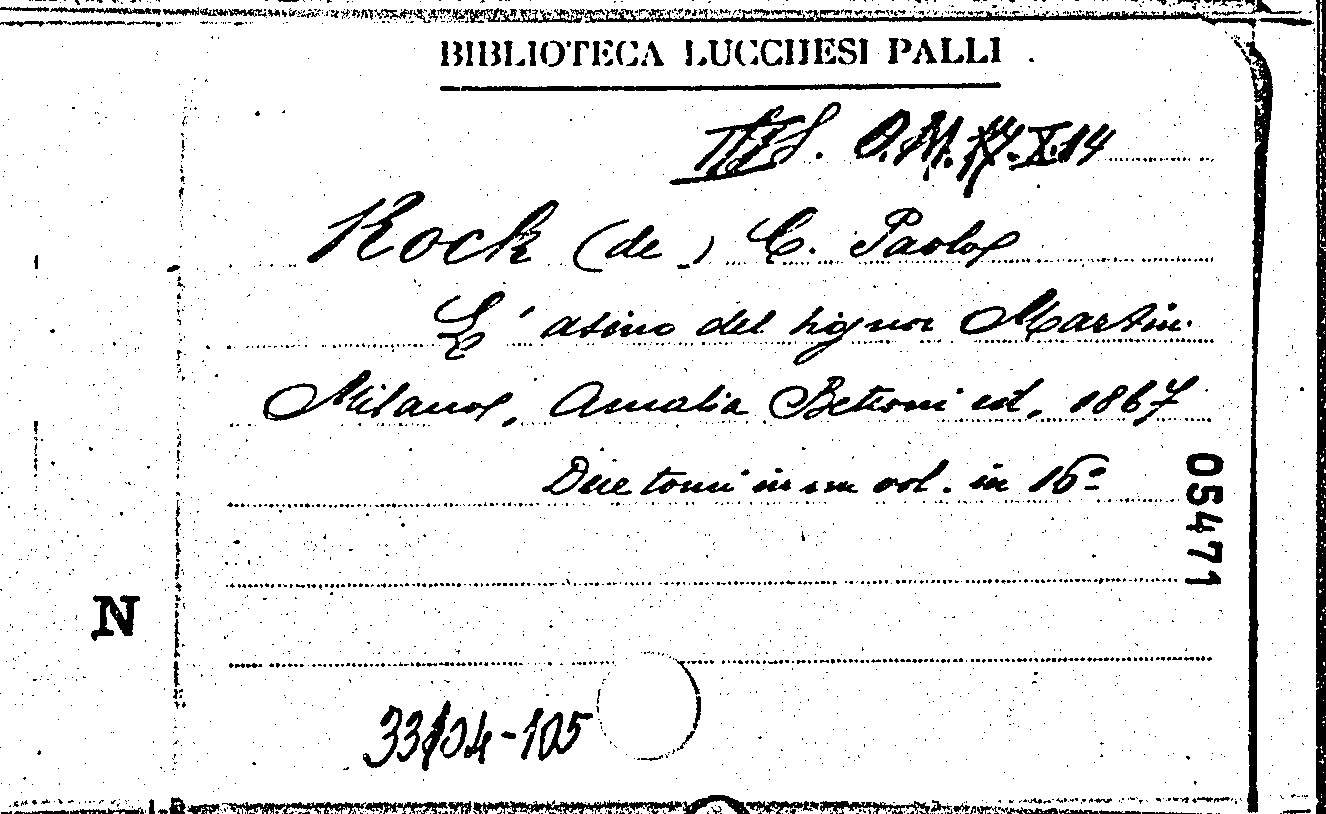 BIBLIOTECA LUCCHESI PALLI
O.M. X.14
Kock (de) C. Paolo
L'asino del signor Martin.
Milano, Amalia Bettoni ed. 1867
Due tomi in un vol. in 16º
05471
N
33104-105